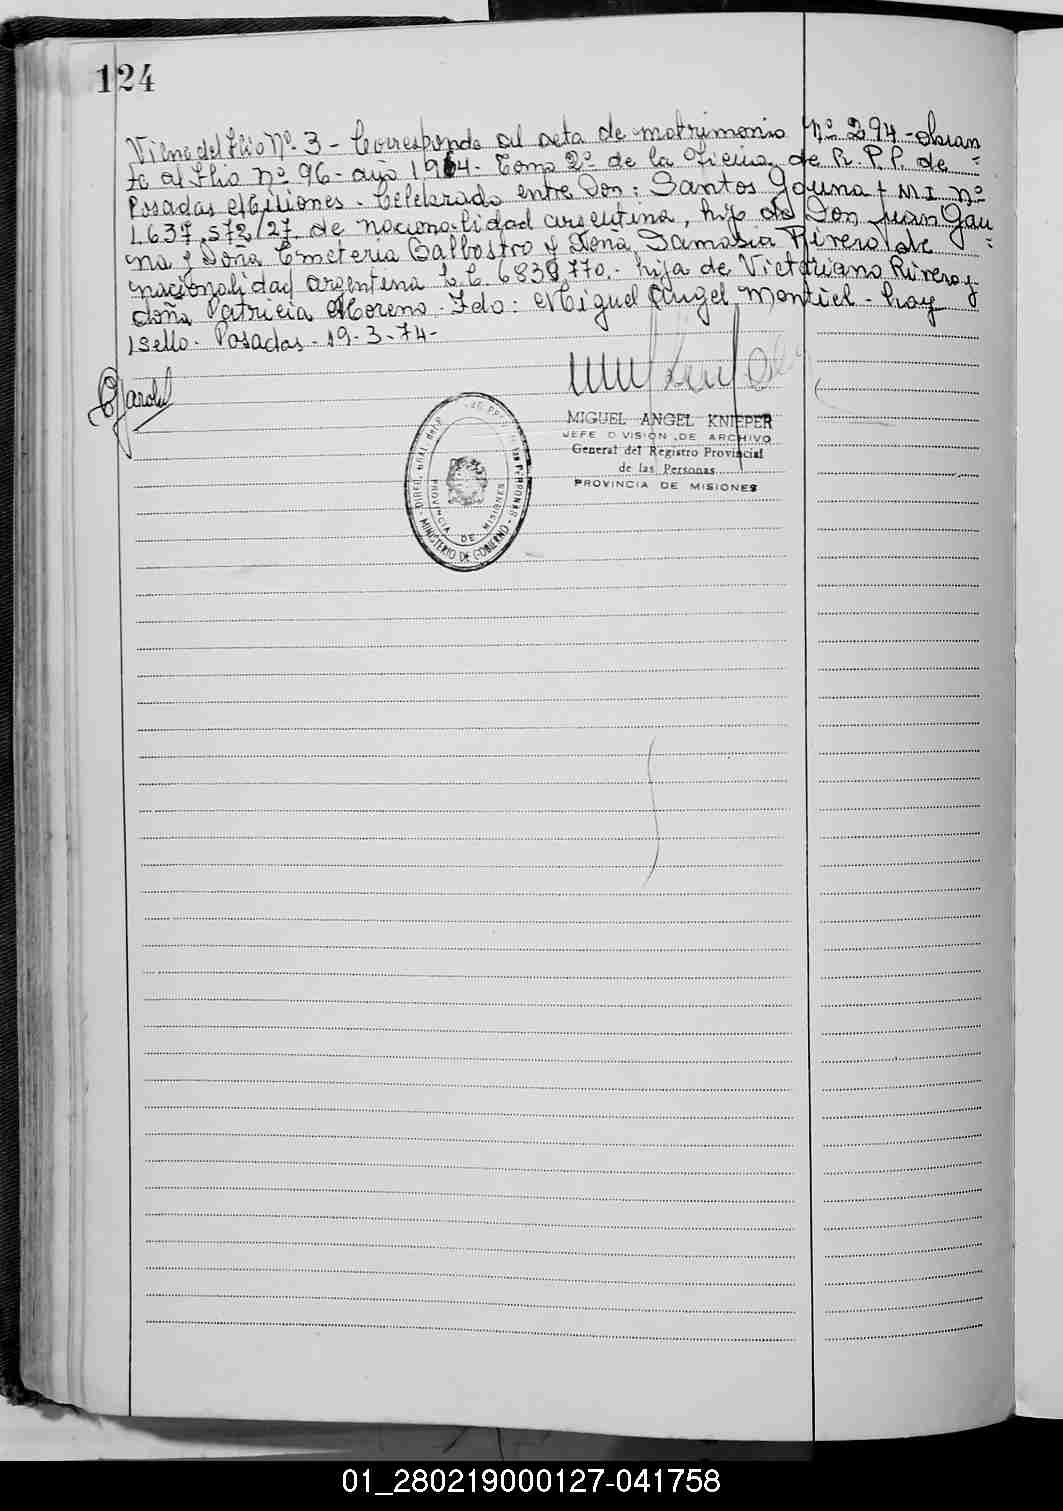 124
Viene del flio Nº 3 - Corresponde al acta de matrimonio Nº 294 - obran=
te al flio nº 96 - año 1964 - Tomo 2º de la Oficina de R. P.P. de
Posadas Misiones. Celebrado entre Don: Santos Gauna M.I. nº
1.637.572/27, de nacionalidad argentina, hijo de Don Juan Gau=
na y Doña Emeteria Balbostro y Doña Damasia Rivero de
nacionalidad argentina L.C. 6838770.- hija de Victoriano Rivero y
doña Patricia Moreno. Fdo: Miguel Angel Montiel - hay
1 sello. Posadas - 19-3-74-
MIGUEL ANGEL KNIEPER
JEFE DIVISION DE ARCHIVO
General del Registro Provincial
de las Personas
PROVINCIA DE MISIONES
PROVINCIA DE MISIONES
MINISTERIO DE GOBIERNO
01_280219000127-041758